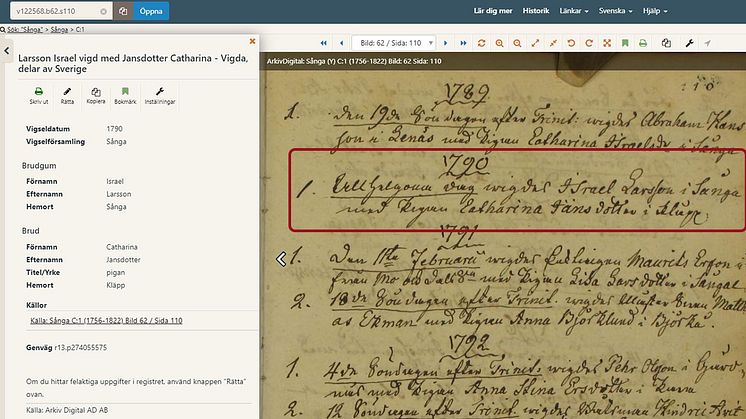 v122568.b62.s110
Öppna
Lär dig mer
Historik
Länkar
Svenska
Hjälp
Sök: "Sånga" > Sånga > C:1
Bild: 62 / Sida: 110
ArkivDigital: Sånga (Y) C:1 (1756-1822) Bild: 62 Sida: 110
Larsson Israel vigd med Jansdotter Catharina - Vigda, delar av Sverige
Skriv ut
Rätta
Kopiera
Bokmärk
Inställningar
Vigseldatum 1790
Vigselförsamling Sånga
Brudgum
Förnamn Israel
Efternamn Larsson
Hemort Sånga
Brud
Förnamn Catharina
Efternamn Jansdotter
Titel/Yrke pigan
Hemort Kläpp
Källor
Källa: Sånga C:1 (1756-1822) Bild 62 / Sida 110
Genväg r13.p274055575
Om du hittar felaktiga uppgifter i registret, använd knappen "Rätta"
ovan.
Källa: Arkiv Digital AD AB
110
1789
1. den 19de Söndagen efter Trinit: wigdes Abraham Hans
son i Lenäs med Pigan Catharina Israelsdr i Sånga
1790
1. Allhelgona dag wigdes Israel Larsson i Sånga
med Pigan Catharina Jansdotter i Klepp.
1791
1. Den 11te Februarii wigdes Maurits Erson
från med Pigan Lisa Larsdotter i Sånga
2. 18de Söndagen efter Trinit. wigdes
as Ekman med Pigan Anna Björklund i Björkå.
1792
1. 4de Söndagen efter Trinit: wigdes Pehr Olsson i
med Pigan Anna Stina Ersdotter i
2. Söndagen efter Trinit. wigdes